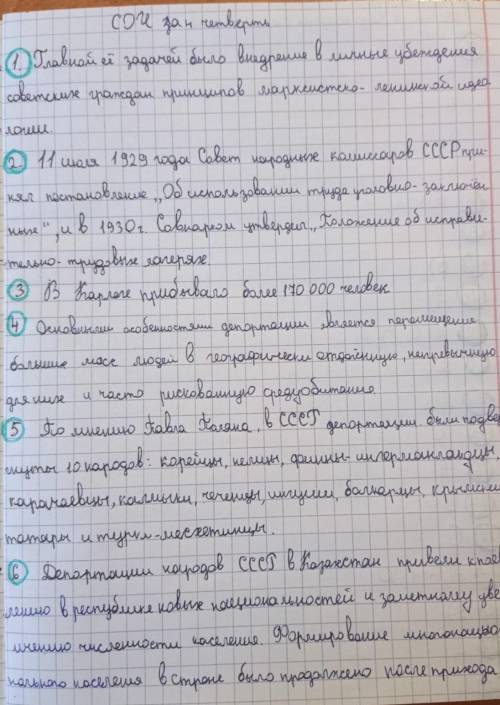 СОЧ за 4 четверть
1. Главной её задачей было внедрение в личные убеждения
советских граждан принципов марксистско-ленинской идеа
логии.
2. 11 июля 1929 года Совет народных комиссаров СССР при-
нял постановление „Об использовании труда уголовно-заключён
ных“, и в 1930г. Совнарком утвердил „Положение об исправи-
тельно-трудовых лагерях
3 В Карлаге прибывало более 170 000 человек
4 Основными особенностями депортации является перемещение
больших масс людей в географически отдалённую, непривычную
для них и часто рискованную среду обитания.
5 По мнению Павла Поляна, в СССР депортации были подвер
гнуты 10 народов: корейцы, немцы, финны-ингерманландцы,
карачаевцы, калмыки, чеченцы, ингуши, балкарцы, крымские
татары и турки-месхетинцы.
6 Депортации народов СССР в Казахстан привели к появ
лению в республике новых национальностей и заметному уве
личению численности населения. Формирование многонацио
нального населения в стране было продолжено после прихода